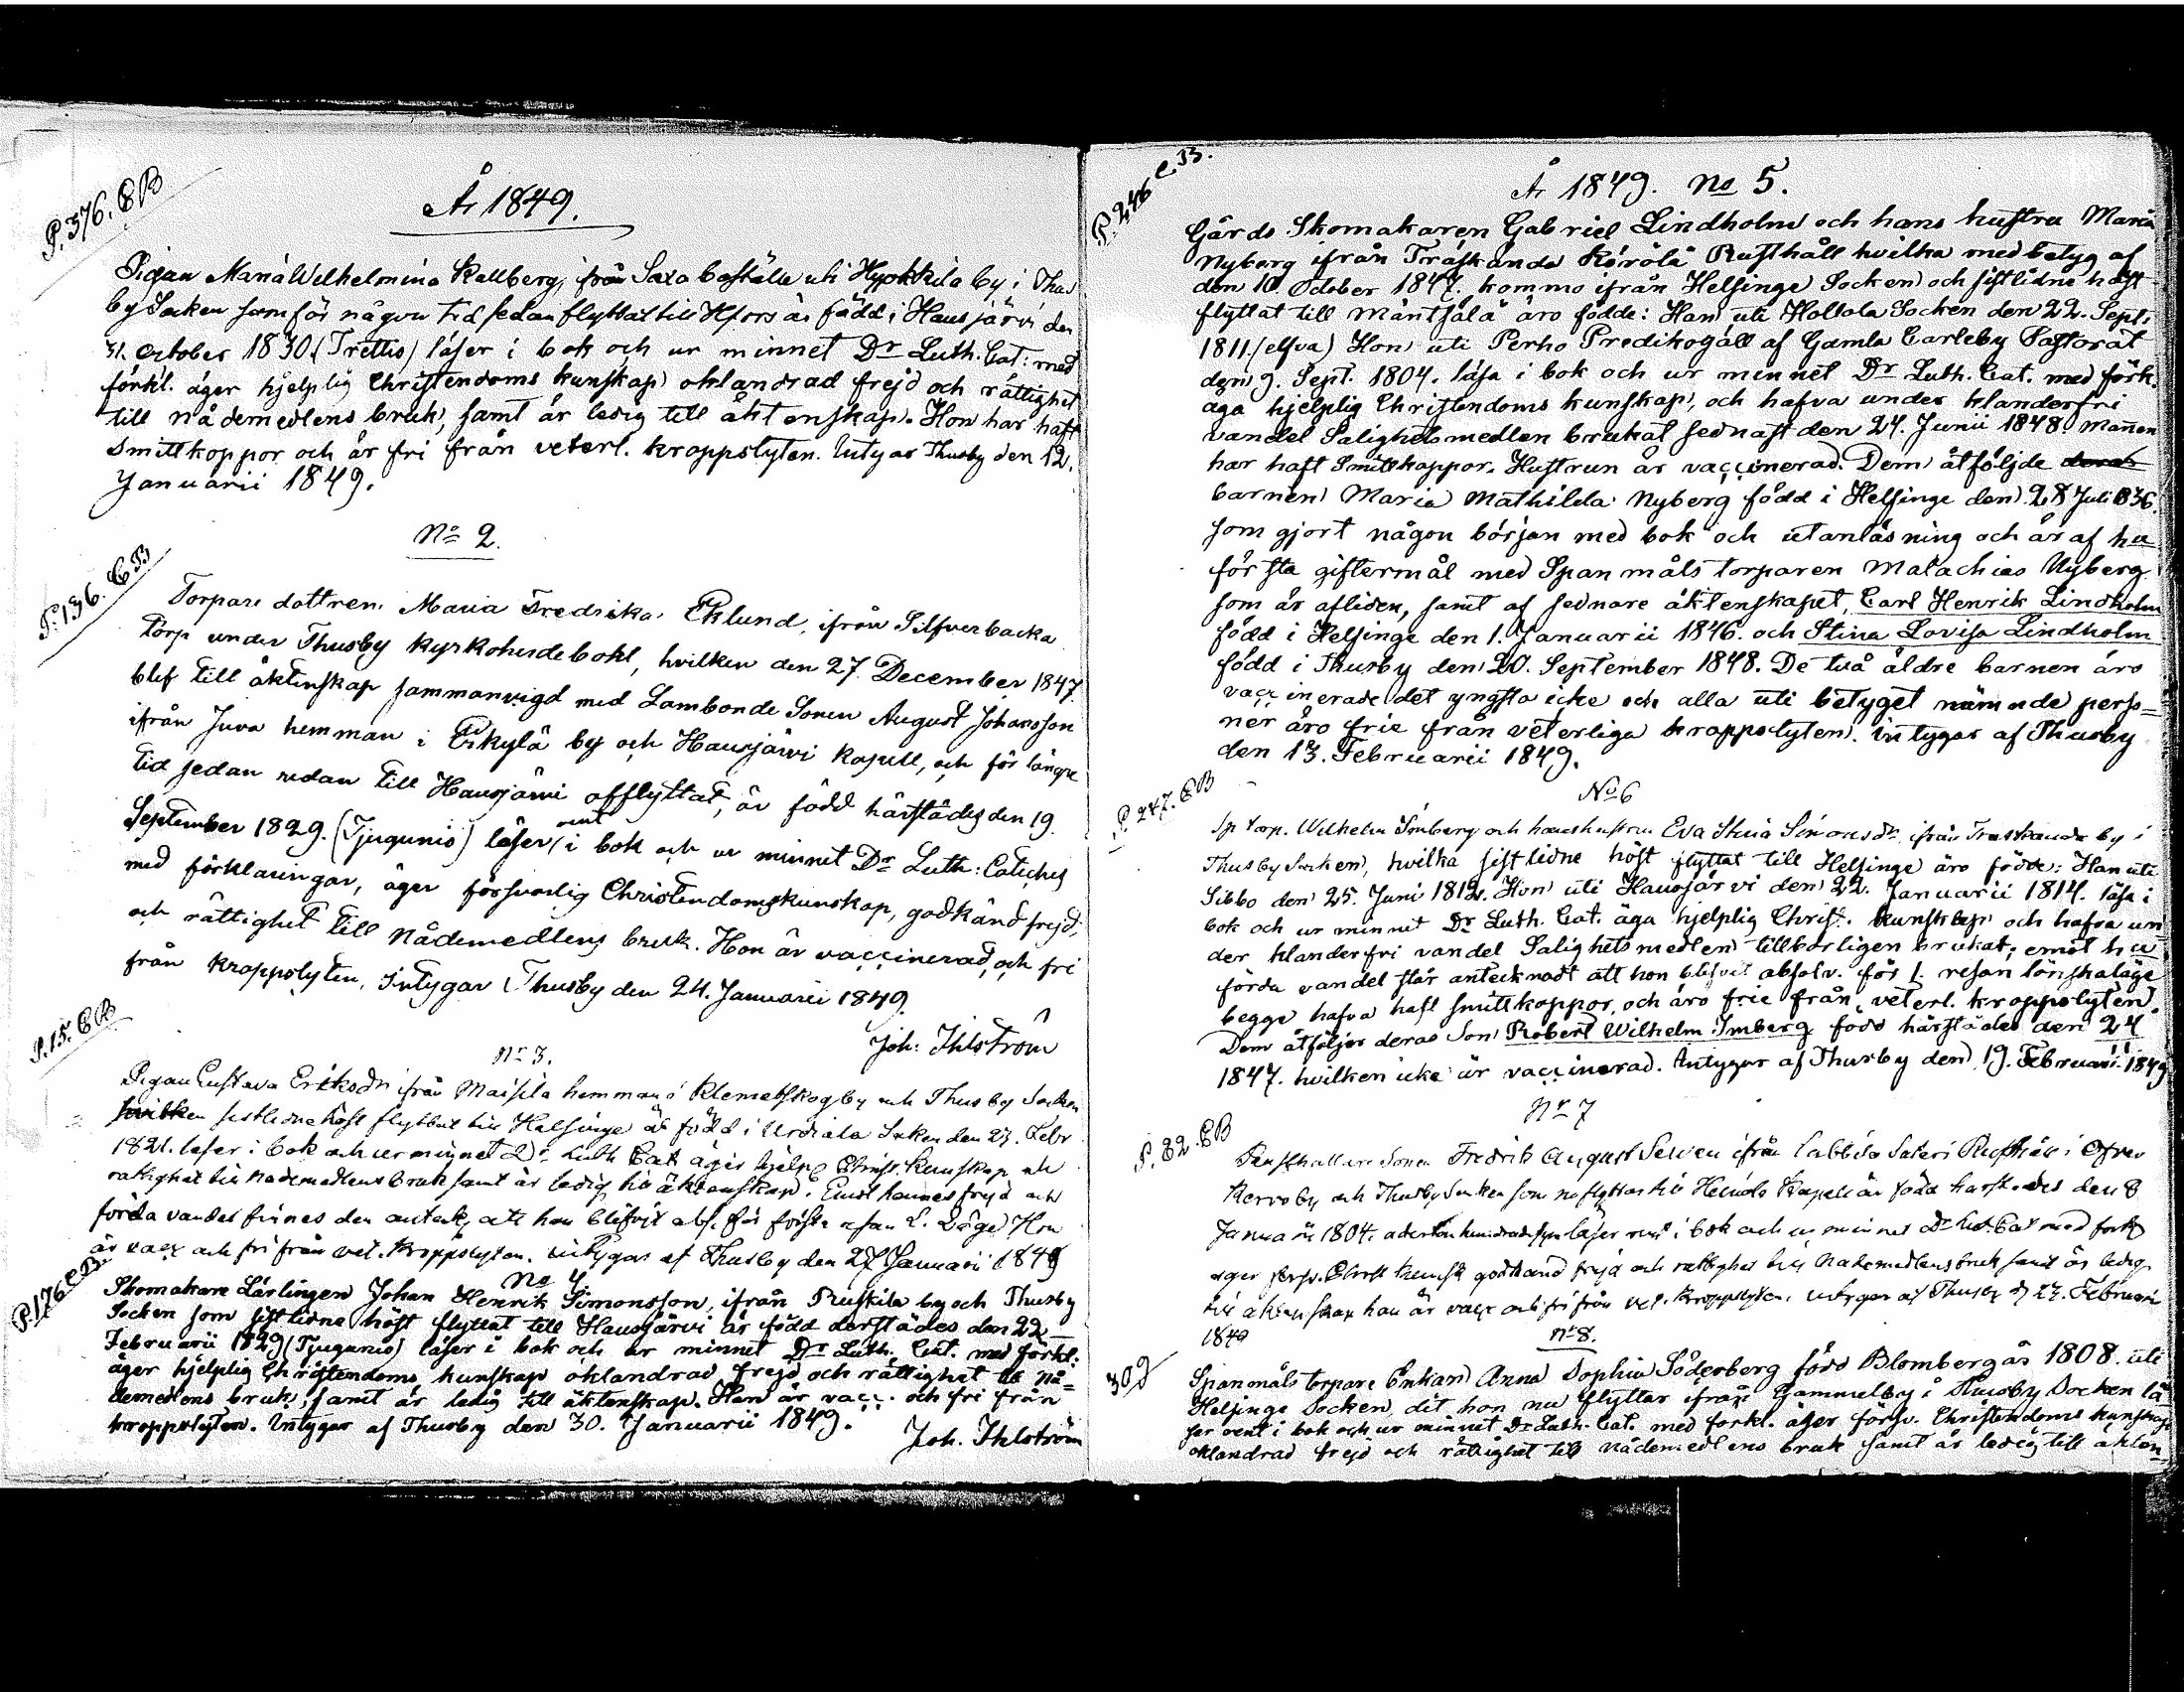 P. 376. CB
År 1849.
Pigan Maria Wilhelmina Kallberg, från Saxa boställe uti Hyökkilä by i Thus
by Socken som för någon tid sedan flyttat till Hfors är född i Hausjärvi den
31. October 1830. (Trettio) läser i bok och ur minnet Dr Luth. Cat: med
förkl. äger hjelplig Christendoms kunskap oklandrad frejd och rättighet
till nådemedlens bruk, samt är ledig till äktenskap. Hon har haft
Smittkoppor och är fri från veterl. kroppslyten. Intygas Thusby den 12.
Januarii 1849.
No 2.
P. 136. CB
Torpare dottren Maria Fredrika Eklund, ifrån Silfverbacka
torp under Thusby kyrkoherdebohl, hvilken den 27 December 1847
blef till äktenskap sammanvigd med Lambonde Sonen August Johansson
ifrån Juva hemman i Erkylä by och Hausjärvi Kapell, och för längre
tid sedan redan till Hausjärvi afflyttat, är född härstädes den 19.
September 1829. (Tjugunio) läser rent i bok och ur minnet Dr Luth: Catiches
med förklaringar, äger försvarlig Christendomskunskap, godkänd frejd,
och rättighet till Nådemedlens bruk. Hon är vaccinerad, och fri
från kroppslyten, Intygar Thusby den 24. Januarii 1849.
Joh: Ihlström
P. 15. CB
No 3.
Pigan Gustava Eriksdr ifrån Maisila hemman i Klemetskog by och Thusby Socken
hvilken sistledne höst flyttat till Helsinge är född i Urdiala Socken den 23. Febr
1821. läser i bok och ur minnet Dr Luth Cat äger hjelpl Christ. Kunskap och
rättighet till Nådemedlens bruk samt är ledig till äktenskap. Emot hennes frejd och
förda vandel finnes den anteck, att hon blifvit abs. för första resan L. Läge. Hon
är vacc och fri från vet. kroppslyten. intygas af Thusby den 27 Januari 1849
P. 176 C.B.
No 4
Skomakare Lärlingen Johan Henrik Simonsson, ifrån Ruskila by och Thusby
Socken som sistlidne höst flyttat till Hausjärvi är född derstädes den 22
Februarii 1829 (Tjugunio) läser i bok och ur minnet Dr Luth. Cat. med förkl:
äger hjelplig Christendoms kunskap oklandrad frejd och rättighet till Nå=
demedlens bruk, samt är ledig till äktenskap. Han är vacc. och fri från
kroppslyten. Intygas af Thusby den 30. Januarii 1849.
Joh. Ihlström
P. 246 C.B.
År 1849. No 5.
Gårds Skomakaren Gabriel Lindholm och hans hustru Maria
Nyberg ifrån Träskända Körölä Rusthåll hvilka med betyg af
den 10. October 1847. kommo ifrån Helsinge Socken och sistlidne höst
flyttat till Mäntsälä äro födde: Han uti Hollola Socken den 22. Sept.
1811. (elfva) Hon uti Perho Predikogäll af Gamla Carleby Pastorat
den 9. Sept. 1804. läsa i bok och ur minnet Dr Luth. Cat. med förk.
äga hjelplig Christendoms kunskap, och hafva under klanderfri
vandel Salighetsmedlen brukat sednast den 24. Junii 1848. Mannen
har haft Smittkoppor. Hustrun är vaccinerad. Dem åtföljde deras
barnen Maria Mathilda Nyberg född i Helsinge den 28 Juli 1836.
som gjort någon början med bok och utanläsning och är af hu
första giftermål med Spanmåls torparen Malachias Nyberg
som är afliden, samt af sednare äktenskapet, Carl Henrik Lindholm
född i Helsinge den 1. Januarii 1846. och Stina Lovisa Lindholm
född i Thusby den 20. September 1848. De två äldre barnen äro
vaccinerade det yngsta icke och alla uti betyget nämnde perso=
ner äro frie från veterliga kroppslyten. intygas af Thusby
den 13. Februarii 1849.
P. 247. CB
No 6
Sp torp. Wilhelm Imberg och hans hustru Eva Stina Simonsdr ifrån Träskända by i
Thusby Socken, hvilka sistlidne höst flyttat till Helsinge äro födde: Han uti
Sibbo den 25. Juni 1812. Hon uti Hausjärvi den 22. Januarii 1814. läsa i
bok och ur minnet Dr Luth. Cat. äga hjelplig Christ. kunskap och hafva un=
der klanderfri vandel Salighetsmedlen tillbörligen brukat; emot hu
förda vandel står antecknadt att hon blifvit absolv. för 1. resan lönskaläge
begge hafva haft Smittkoppor, och äro frie från veterl. kroppslyten.
Dem åtföljer deras Son Robert Wilhelm Imberg född härstädes den 24
1847. hvilken icke är vaccinerad. Intygas af Thusby den 19. Februari 1849
No 7
P. 82. CB
Rusthållare Sonen Fredrik August Seven ifrån Labbis Säteri Rusthåll i Öfver
Kervo by och Thusby Socken som nu flyttar till Kapell är född härstädes den 8
Januarii 1804. läser rent i bok och ur minnet Dr Lut. Cat med förkl
äger försv. Christ kunsk godkänd frejd och rättighet till Nådemedlens bruk samt är ledig
till äktenskap han är vacc och fri från vet. kroppslyten. intygas af Thusby d 23. Februari
1849
No 8.
309
Spanmåls torpare Enkan Anna Sophia Söderberg född Blomberg år 1808. uti
Helsinge Socken, dit hon nu flyttar ifrån Gammelby i Thusby Socken lä
ser rent i bok och ur minnet Dr Luth. Cat. med förkl. äger försv. Christendoms kunskap
oklandrad frejd och rättighet till nådemedlens bruk samt är ledig till äkten=